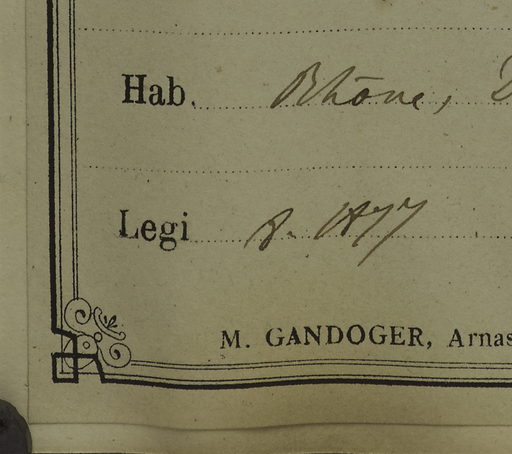 Hab. Rhône,
Legi 8. 1877
M. GANDOGER, Arnas